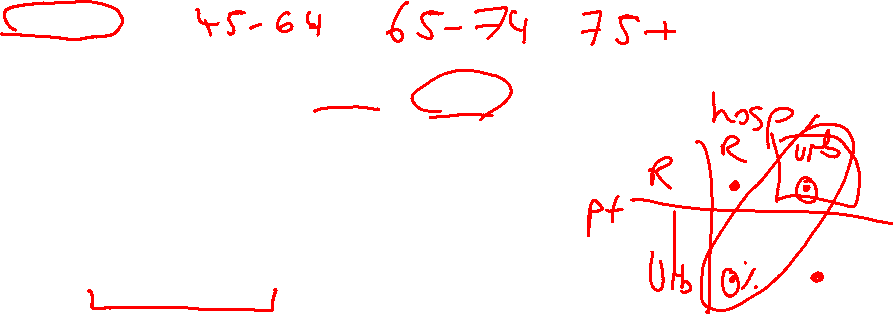 45-64 65-74 75+
hosp
R urb
R
pt
Urb 0%